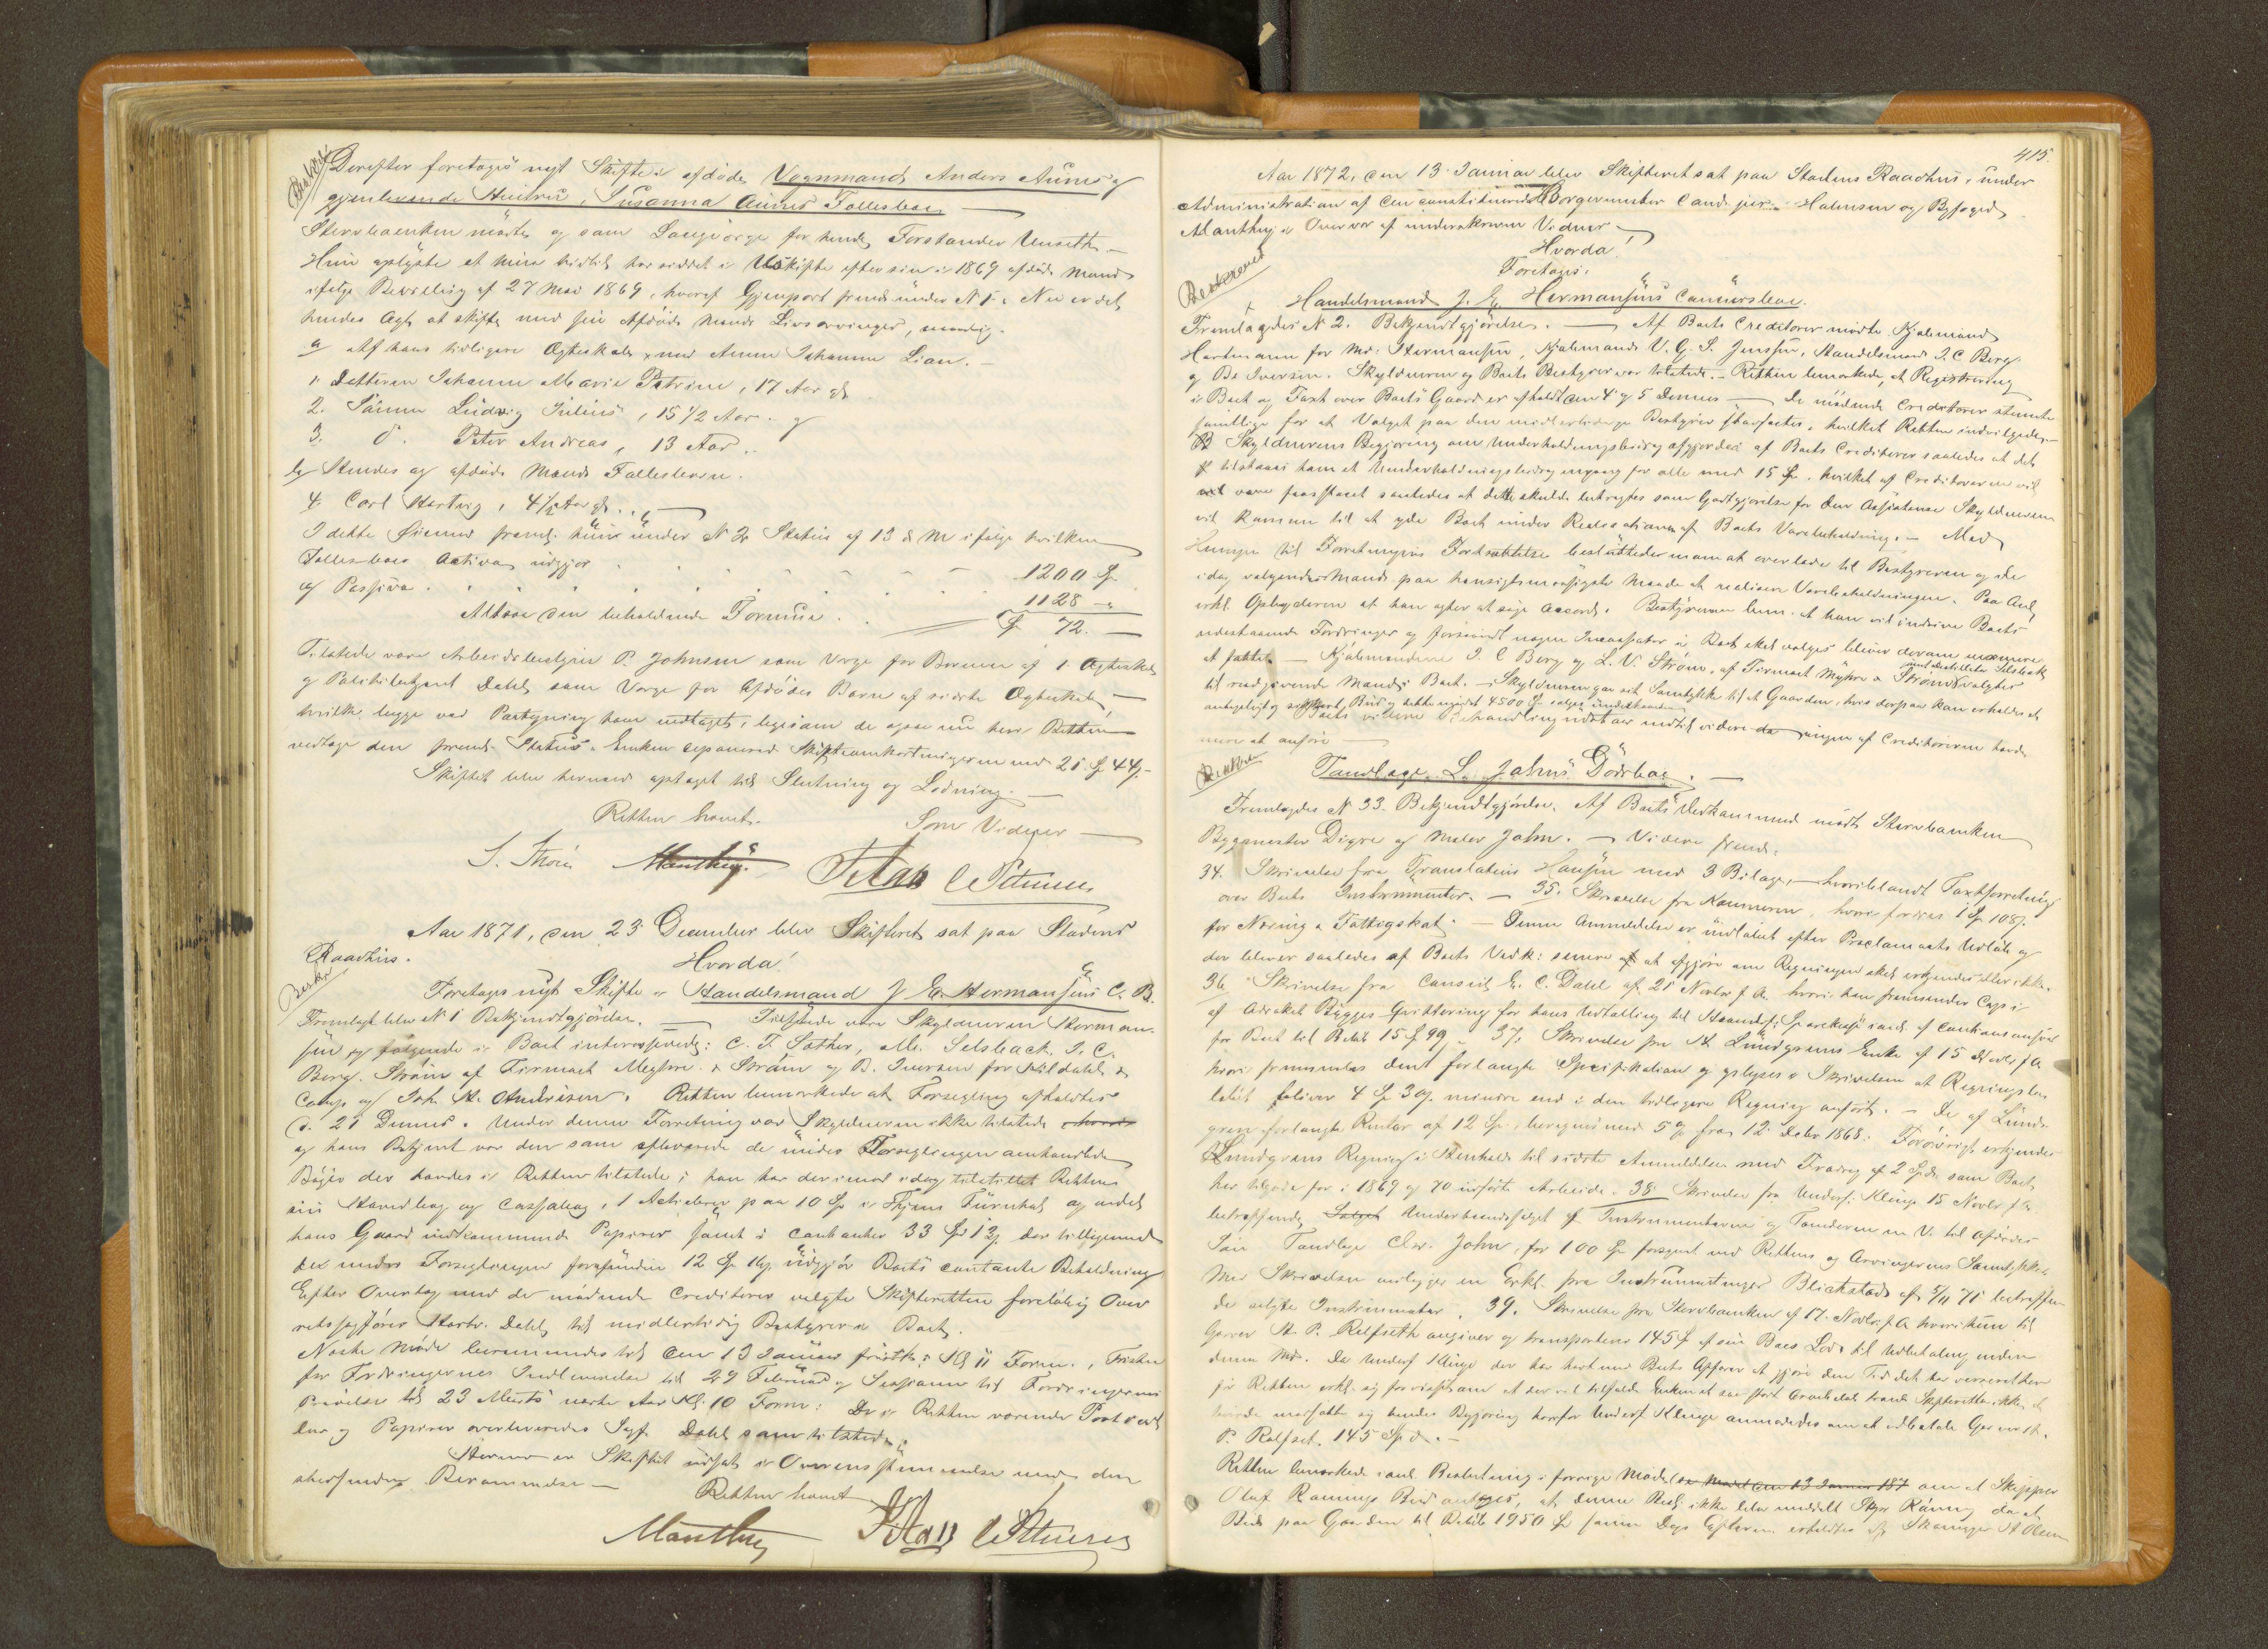 Beskr.
Derefter foretages nyt Skifte i afdøde Vognmand Anders Aunes og
gjenlevende Hustru, Susanna Aunes Fællesbo
Stervboenken mødte og som Laugværge for hende Forstander Unseth.
Hun oplyste at hun hidtil har siddet i Uskiftet efter sin i 1869 afdøde Mand
ifølge Bevilling af 27 Mai 1869, hvoraf Gjenpart fremlk. under N 1. Nu er det
hendes Agt at skifte med sin Afdøde Mands Livsarvinger, nemlig.
a Af hans tidligere Ægteskab, med Anne Johanna Lian.
1. Datteren Johanna Marie Petrine, 17 Aar gl.
2. Sønnen Ludvig Julius, 15 1/2 Aar. og
3. d. Peter Andreas, 13 Aar.
b Hendes og afdøde Mands Fællesbarn.
4. Carl Hartvig, 4 1/2 Aar gl.
I dette Øiemed freml. hun under N 2 Status af 13 d M ifølge hvilken
Fællesboets Activa udgjør . . . 1200 Sp
og Passiva . . . 1128 "
Altsaa den beholdende Formue . . Sp 72. —
Tilstede var Arbeidsbestyrer P. Johnsen som Værge for Børnene af 1. Ægteskab
og Politibetjent Dahl som Værge for Afdødes Barn af sidste Ægteskab,
hvilke begge ved Paategning have vedtaget, ligesom de ogsaa nu here Retten
vedtage den freml. Status. Enken deponered Skifteomkostningerne med 21 Sp 44 s.
Skiftet blev hermed optaget til Slutning og Lodning.
Retten hævet.
Som Vidner
Manthey
Aar 1871, den 23 December blev Skifteret sat paa Stadens
Raadhus.
Hvorda!
Beskr
Foretages nyt Skifte i Handelsmand J. E. Hermansens C. B.
Fremlagt blev N 1 Bekjendtgjørelse. — Tilstede var Skyldneren Herman-
sen og følgende i Boet interesserede: C. F. Sother, M. Selsback, J. C.
Berg, Strøm af Firmaet Myhre & Strøm og B. Iversen for Kildahl &
Comp og Joh. H. Andresen. Retten bemærkede at Forsegling afholdtes
d. 21 Dennes. Under denne Forretning var Skyldneren ikke tilstede
og hans Betjent var den som afleverede de under Forseglingen omhandlede
Bøger der havdes i Retten tilstede; han har derimod idag tilstillet Retten
sin Hovedbog og Cassabog, 1 Actiebrev paa 10 Sp i Thjems Turnhal og endel
hans Gaard vedkommende Papirer samt i contanter 33 Sp 12 s. der tilligemed
det under Forseglingen forefundne 12 Sp udgjør Boets contante Beholdning
Efter Overlæg med de mødende Creditorer valgte Skifteretten foreløbig Over
retssagfører Hartv. Dahl til midlertidig Bestyrer i Boet.
Næste Møde berammedes til den 13 Januar førstk: Kl 11 Form., Fristen
for Fordringernes Indlevering til 29 Februar og Sessionen til Fordringernes
Prøvelse til 23 Marts næste Aar Kl. 10 Form: De i Retten værende Protocol
ler og Papirer overleveredes Sagf. Dahl som tilstede.
Hermed er Skiftet udsat i Overensstemmelse med den
skeede Berammelse —
Retten hævet
Manthey
415.
Aar 1872, den 13 Januar blev Skifteret sat paa Stadens Raadhus, under
Administration af den constituerede Borgermester Cand. jur. Halvorsen og Byfoged
Manthey i Overvær af underskrevne Vidner
Hvorda!
Foretages:
Beskrevet
Handelsmand J. E. Hermansens Concursboe.
Fremlagdes N 2. Bekjendtgjørelse. — Af Boets Creditorer mødte Kjøbmand
Hartmann for Md: Hermansen, Kjøbmand V. G. S. Jenssen, Handelsmand J. C. Berg
og Bs. Iversen. Skyldneren og Boets Bestyrer var tilstede. — Retten bemærkede, at Registrering
i Boet og Taxt over Boets Gaard er afholdt den 4 og 5 Dennes — De mødende Creditorer stemte
samtlige for at Valget paa den midlertidige Bestyrer stadfæstes, hvilket Retten indvilgede.
Skyldnerens Begjæring om Underholdningsbidrag afgjordes af Boets Creditorer saaledes at det
tilstaaes ham et Underholdningsbidrag engang for alle med 15 Sp, hvilket af Creditorerne vil
være forstaaet saaledes at dette skulde betragtes som Godtgjørelse for den Assistance Skyldneren
vil komme til at yde Boet under Realisationen af Boets Varebeholdning. — Med
Hensyn til Forretningens Fortsættelse besluttedes man at overlade til Bestyreren og de
idag valgende Mænd paa hensigtsmæssigste Maade at realisere Varebeholdningen. Paa Anl.
erkl. Opbyderen at han agter at søge Accord. Bestyreren bem. at han vil inddrive Boets
udestaaende Fordringer og forsaavidt nogen Incassator i Boet skal vælges bliver derom nærmere
at fatte. — Kjøbmændene J. C. Berg og L. V. Strøm, af Firmaet Myhre & Strøm valgtes
samt Destillatør Selsback
til raadgivende Mænd i Boet. — Skyldneren gav sit Samtykke til at Gaarden, hvis derpaa kan erholdes et
antageligt og sikkert Bud og dette udgjør 4500 Sp. sælges underhaanden.
Boets videre Behandling udstaar indtil videre da ingen af Creditorerne havde
mere at anføre
Beskr
Tandlæge L. Jahns Dødsboe.
Fremlagdes N 33 Bekjendtgjørelse. Af Boets Vedkommende mødte Stervboenken
Bygmester Digre og Maler Jahn. — Videre freml.
34. Skrivelse fra Translatør Hansen med 3 Bilage, — hvoriblandt Taxtforretning
over Boets Instrumenter. — 35. Skrivelse fra Kæmneren, hvori fordres 1 Sp 108 s.
for Nærings & Fattigskat. — Denne Anmeldelse er indløbet efter Proclamaets Udløb og
der bliver saaledes af Boets Vedk: senere at afgjøre om Regningen skal erkjendes eller ikke.
36. Skrivelse fra Consul E. C. Dahl af 21 Novbr f. A. hvori han fremsender Copi
af Advokat Bugges Qvittering for hans Udtælling til Strinds Sparekasse i anl. af Cautionsansvar
for Boet til Beløb 15 Sp 99 s. 37. Skrivelse fra A. Lundgrens Enke af 15 Novbr f A
hvori fremsendes den forlangte Specifikation og oplyses i Skrivelsen at Regningsbe
løbet bliver 4 Sp 30 s. mindre end i den tidligere Regning anført. — De af Lund-
gren forlangte Renter af 12 Sp, beregnes med 5 % fra 12 Debr 1868. Forøvrigt erkjendes
Lundgrens Regning i Henhold til sidste Anmeldelse med Fradrag af 2 Spd. som Boet
har tilgode for i 1869 og 70 udførte Arbeide. 38. Skrivelse fra Underf. Klinge 15 Novbr f A.
betræffende Underhaandssalget af Instrumenterne og Tænderne m. V. til Afdødes
Søn Tandlæge Chr. Jahn, for 100 Sp foregaaet med Rettens og Arvingernes Samtykke.
Med Skrivelsen vedlægges en Erkl. fra Instrumentmager Blickstad af 5/11 71 betræffen-
de solgte Instrumenter. 39. Skrivelse fra Stervboenken af 17. Novbr. f. A hvori hun til
Garver H. P. Rolfseth angiver og transporterer 145 Sp af sin Boes Lod til Udbetaling inden
denne Md. Da Underf Klinge der har havt med Boets Affærer at gjøre den Tid det har verseret
for Retten erkl. sig forvisset om at der vil tilfalde Enken et saa stort Arvebeløb troede Skifteretten ikke at
burde modsætte sig hendes Begjæring hvorfor Underf Klinge anmodedes om at udbetale Garver H.
P. Rolfset. 145 Spd. —
Retten bemærkede i anl. Beslutning i forrige Møde om at Skipper
Oluf Rønnings Bud antages, at denne Besl. ikke blev meddelt Skpr Rønning da et
Bud paa Gaarden til Beløb 1950 Sp samme Dags Efterm. erholdtes af Skomager A Olsen